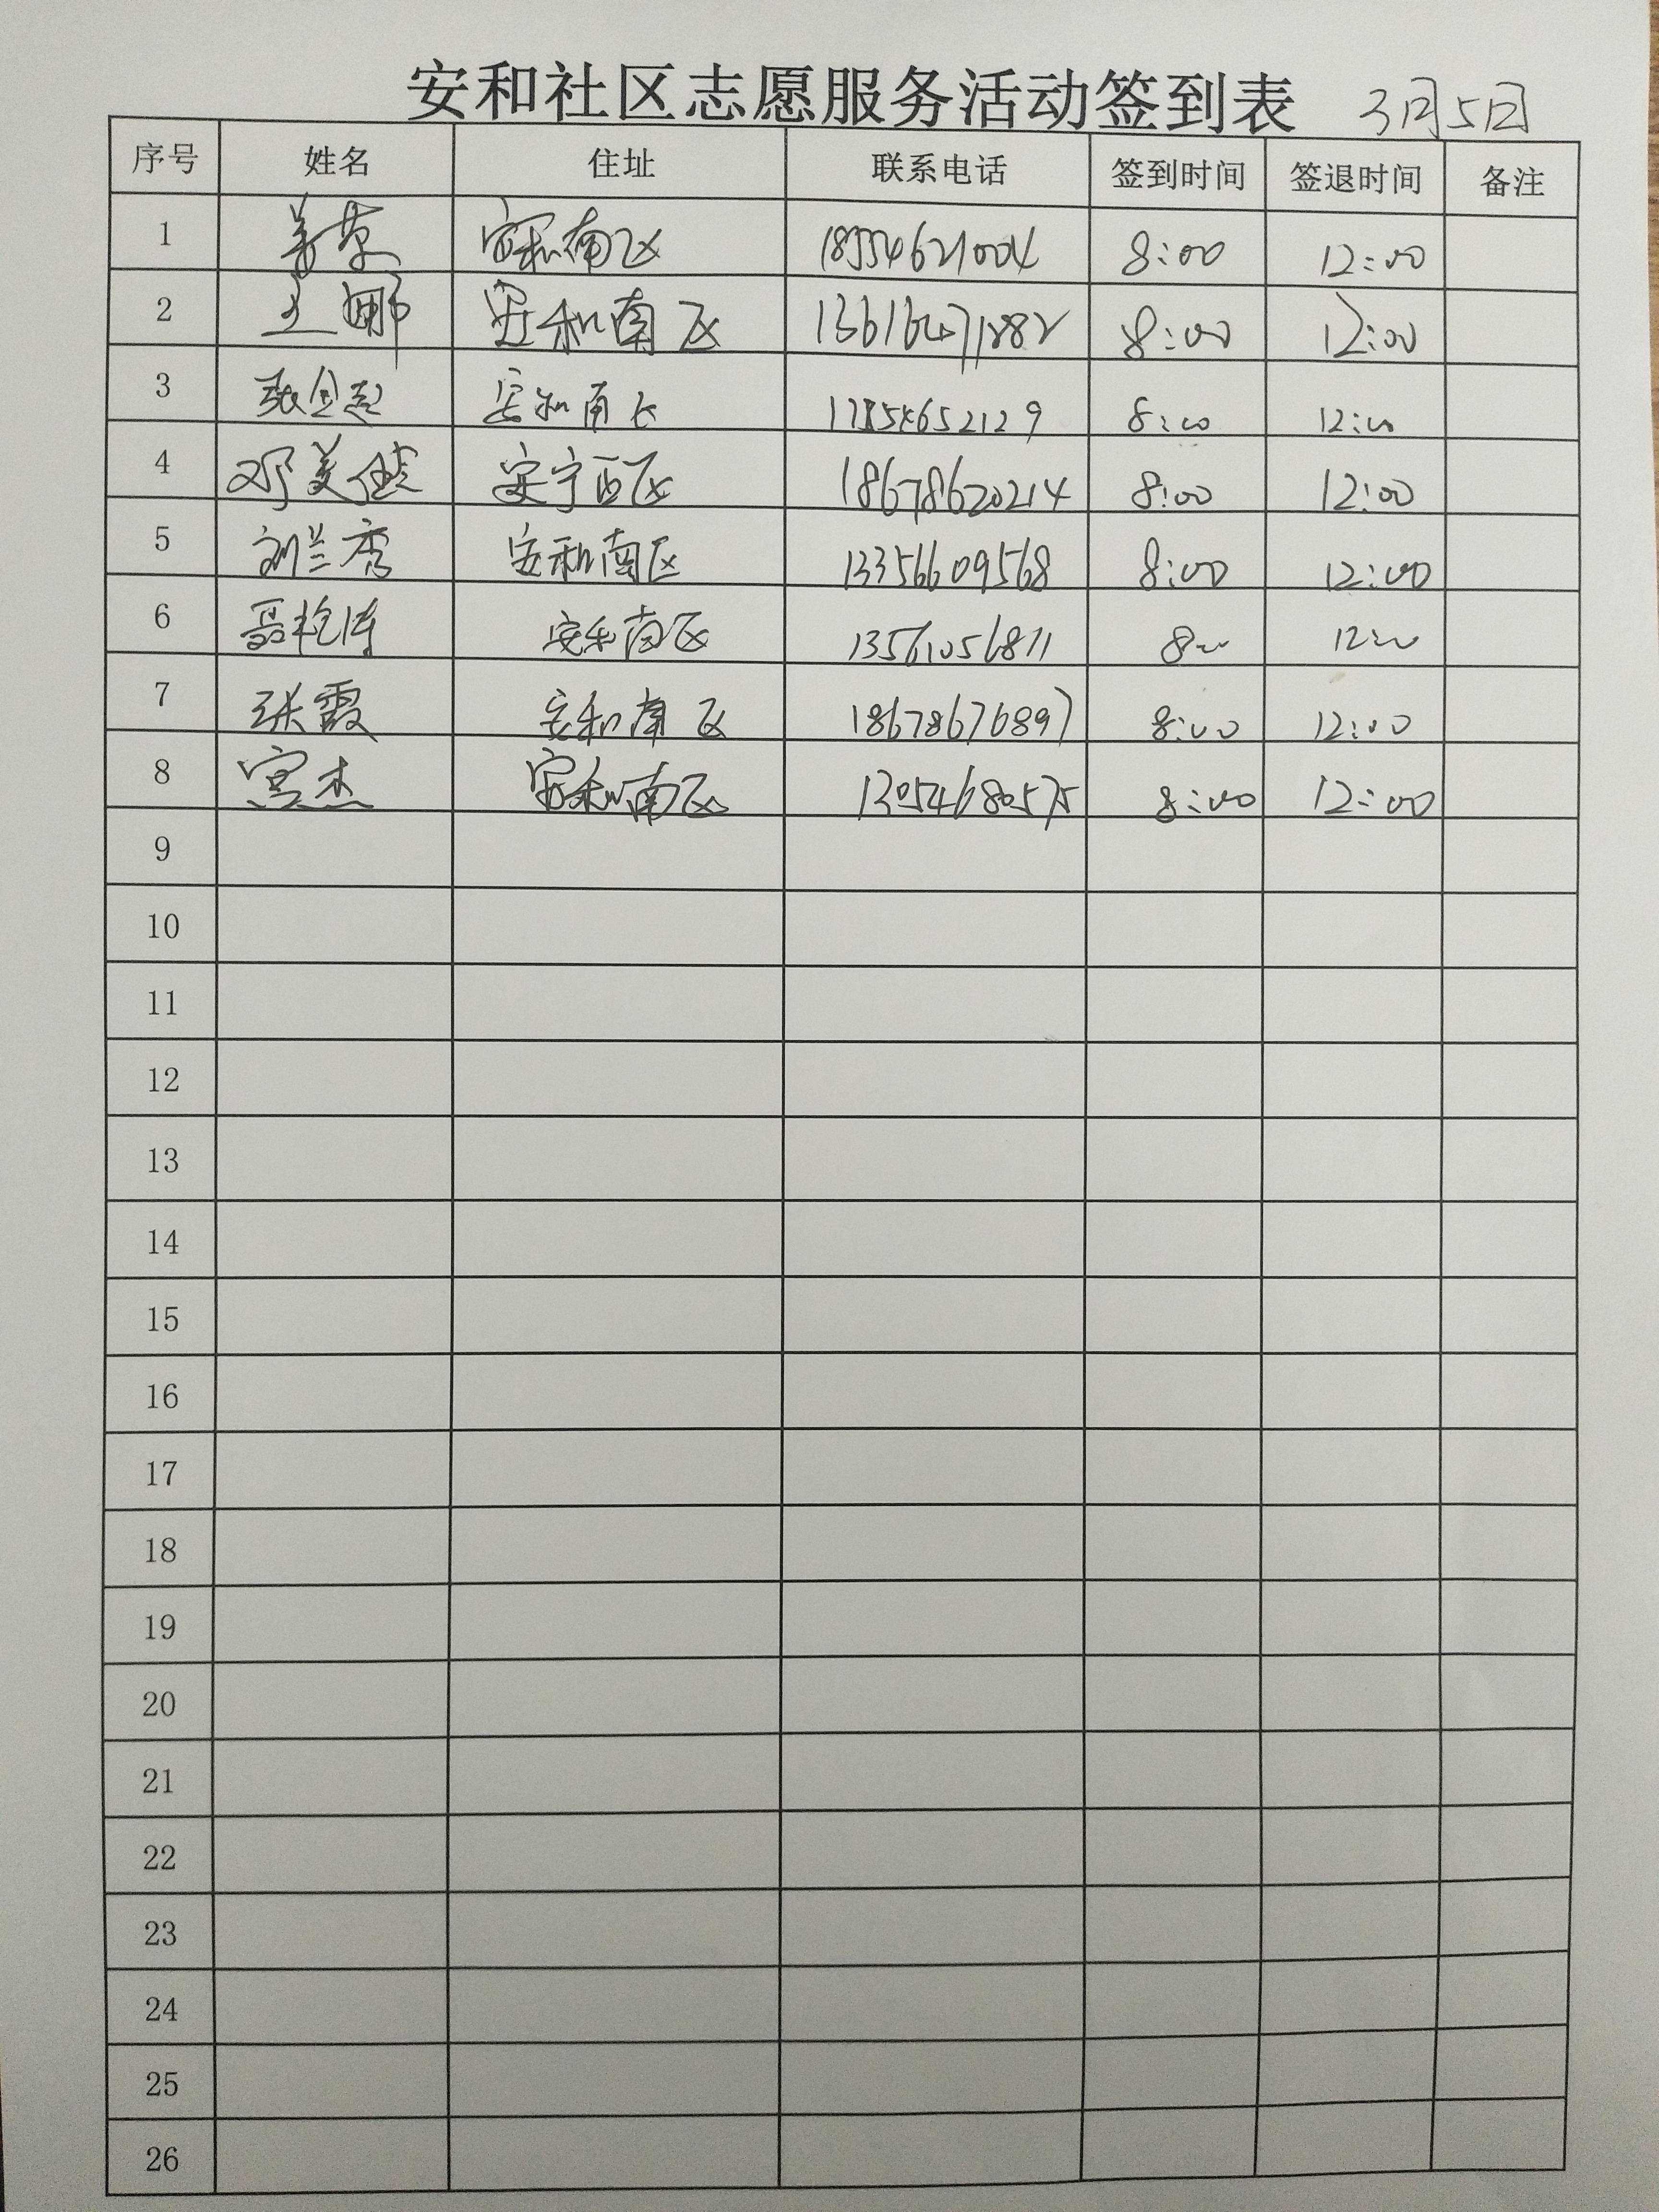 安和社区志愿服务活动签到表 3月5日
序号 姓名 住址 联系电话 签到时间 签退时间 备注
1 姜苹 安和南区 18554621004 8:00 12:00
2 王娜 安和南区 13616471282 8:00 12:00
3 安和南区 17854652129 8:00 12:00
4 邓美佳 安宁西区 18678620214 8:00 12:00
5 刘兰秀 安和南区 13356609568 8:00 12:00
6 聂艳涛 安和南区 13561056811 8:00 12:00
7 张霞 安和南区 18678676897 8:00 12:00
8 宫杰 安和南区 13054680575 8:00 12:00
9
10
11
12
13
14
15
16
17
18
19
20
21
22
23
24
25
26